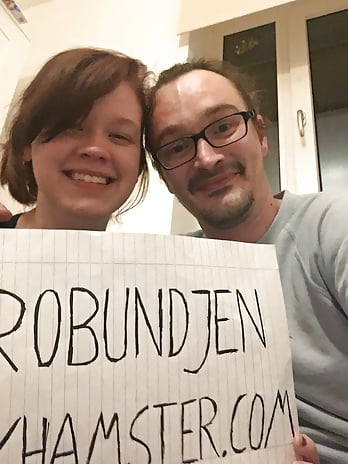 ROBUNDJEN
YHAMSTER.COM